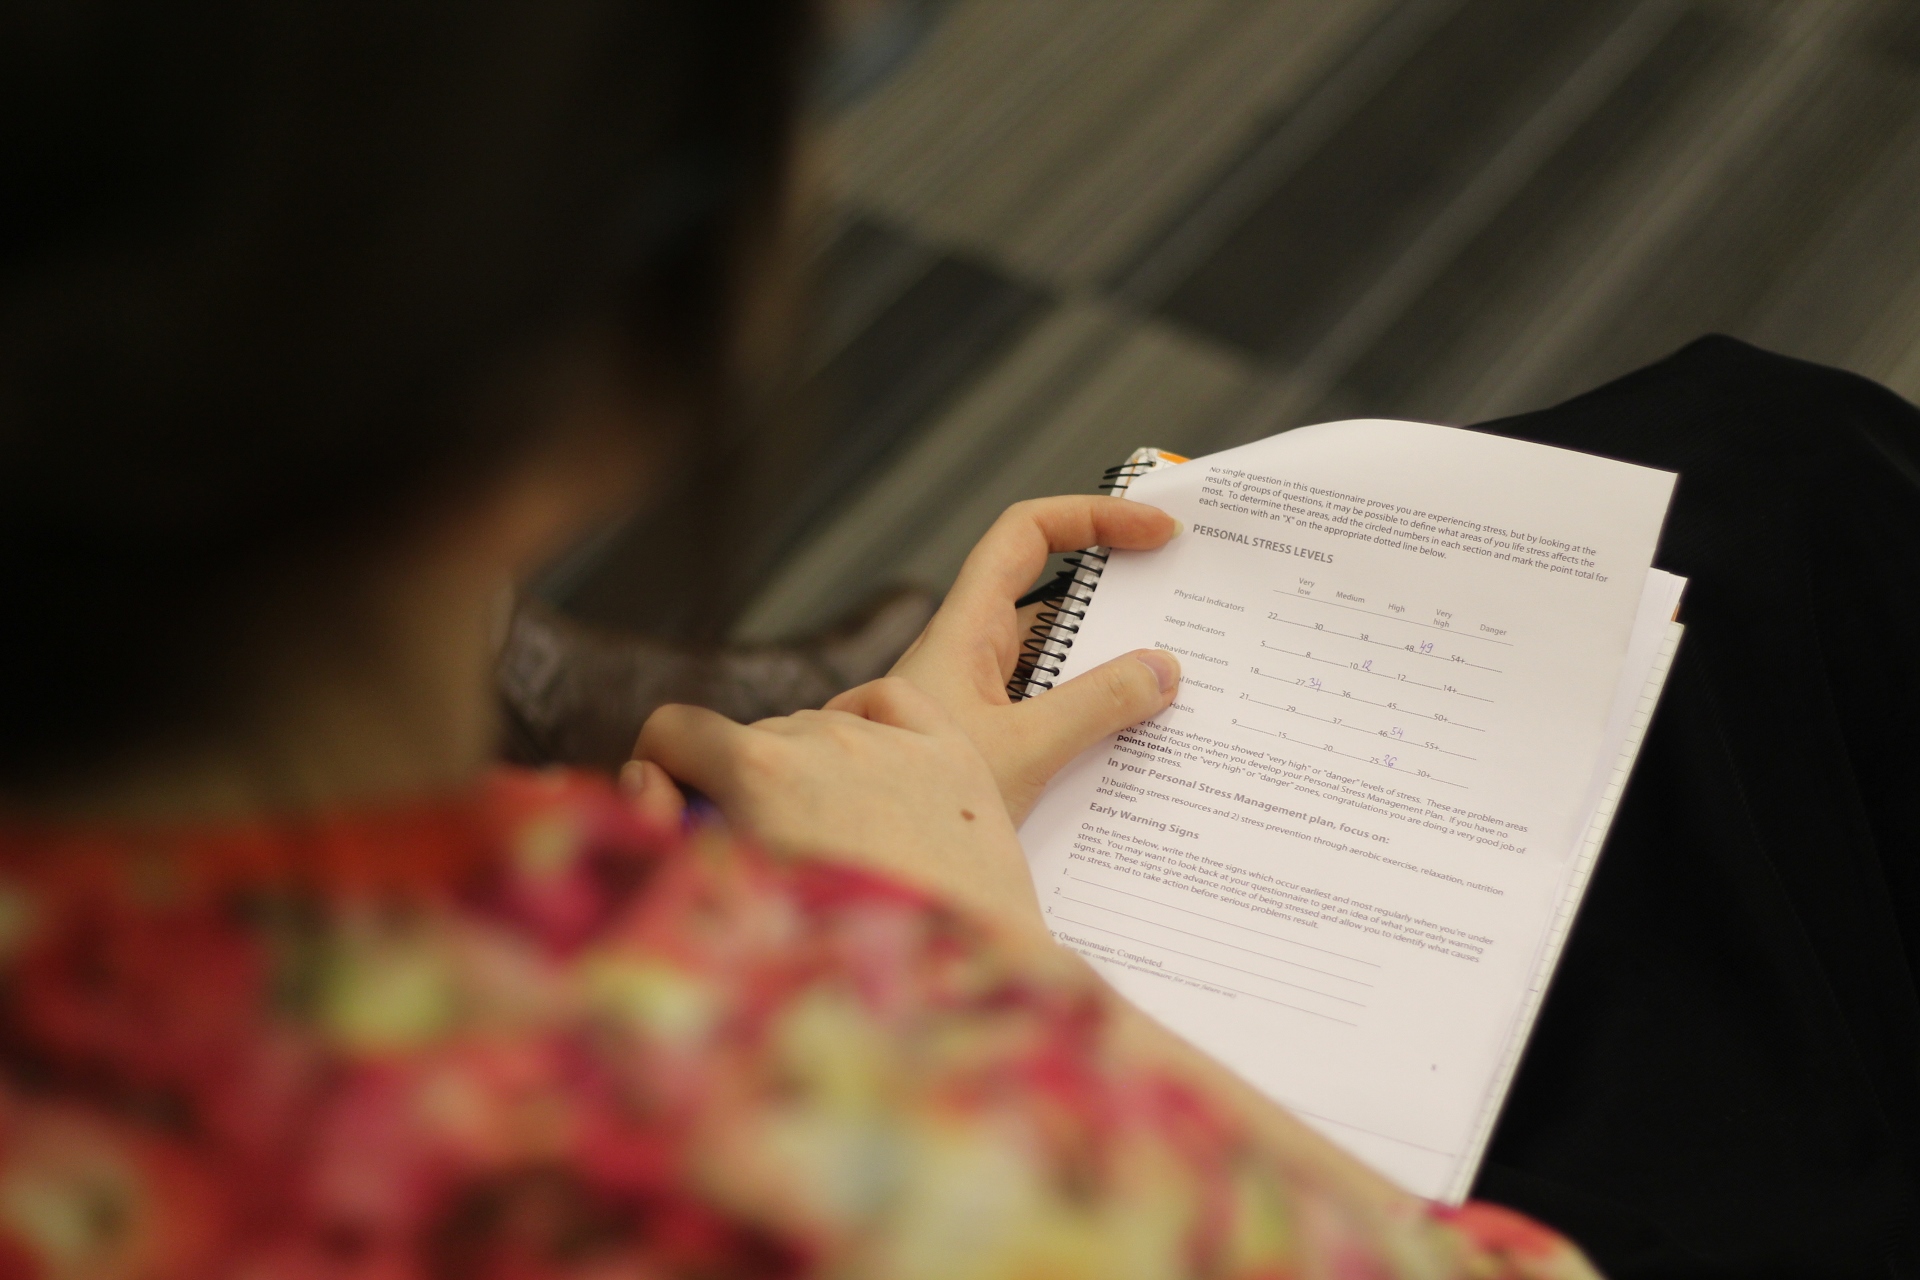 No single question in this questionnaire proves you are experiencing stress, but by looking at the
results of groups of questions, it may be possible to define what areas of you life stress affects the
most. To determine these areas, add the circled numbers in each section and mark the point total for
each section with an "X" on the appropriate dotted line below.
PERSONAL STRESS LEVELS
Very low Medium High Very high Danger
Physical Indicators 22 30 38 48 49 54+
Sleep Indicators 5 8 10 12 12 14+
Behavior Indicators 18 27 34 36 45 50+
l Indicators 21 29 37 46 54 55+
Habits 9 15 20 25 26 30+
e the areas where you showed "very high" or "danger" levels of stress. These are problem areas
you should focus on when you develop your Personal Stress Management Plan. If you have no
points totals in the "very high" or "danger" zones, congratulations you are doing a very good job of
managing stress.
In your Personal Stress Management plan, focus on:
1) building stress resources and 2) stress prevention through aerobic exercise, relaxation, nutrition
and sleep.
Early Warning Signs
On the lines below, write the three signs which occur earliest and most regularly when you're under
stress. You may want to look back at your questionnaire to get an idea of what your early warning
signs are. These signs give advance notice of being stressed and allow you to identify what causes
you stress, and to take action before serious problems result.
1.
2.
3.
te Questionnaire Completed
this completed questionnaire for your future use)